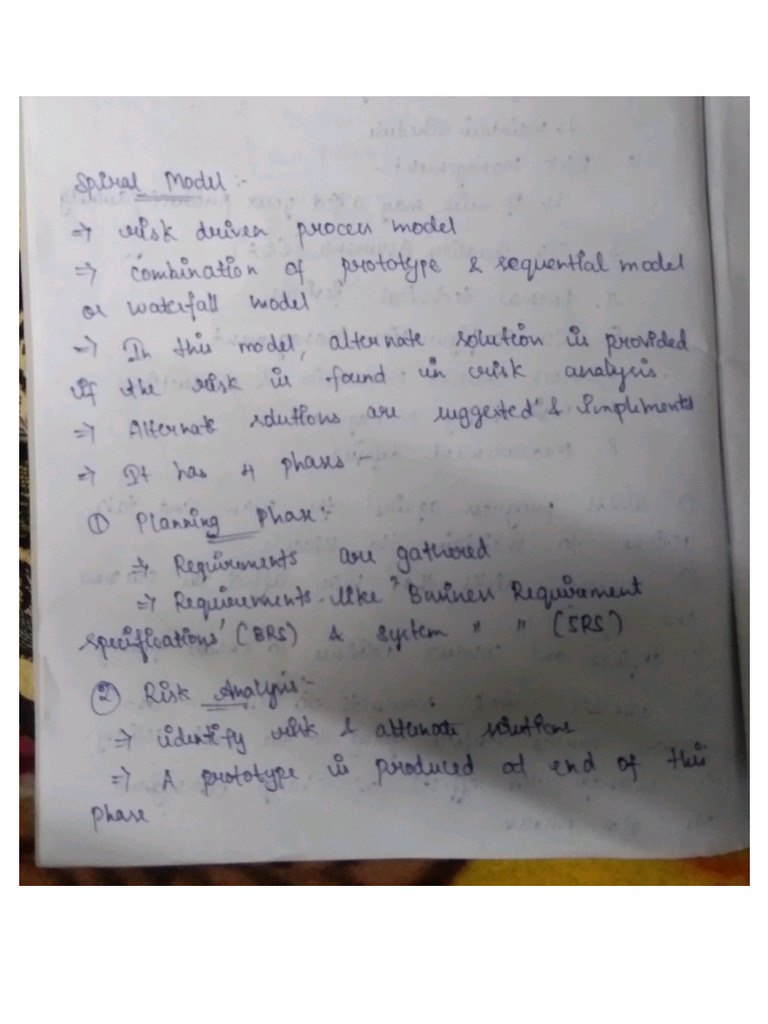 Spiral Model :-
=> risk driven process model
=> combination of prototype & sequential model
or waterfall model
=> In this model, alternate solution is provided
if the risk is found in risk analysis.
=> Alternate solutions are suggested & implements
=> It has 4 phases :-
① Planning Phase :-
=> Requirements are gathered
=> Requirements like 'Business Requirement
specifications' (BRS) & system " " (SRS)
② Risk Analysis :-
=> identify risk & alternate solutions
=> A prototype is produced at end of this
phase